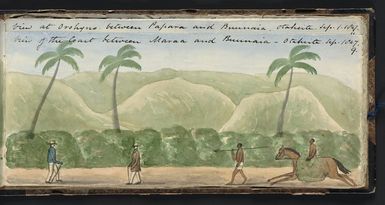 View at Orohyno between Papara and Bunnaia, Otaheite Sep. 1. 1849.
View of the Coast between Maraa and Bunnaia - Otaheite Sep. 1849.